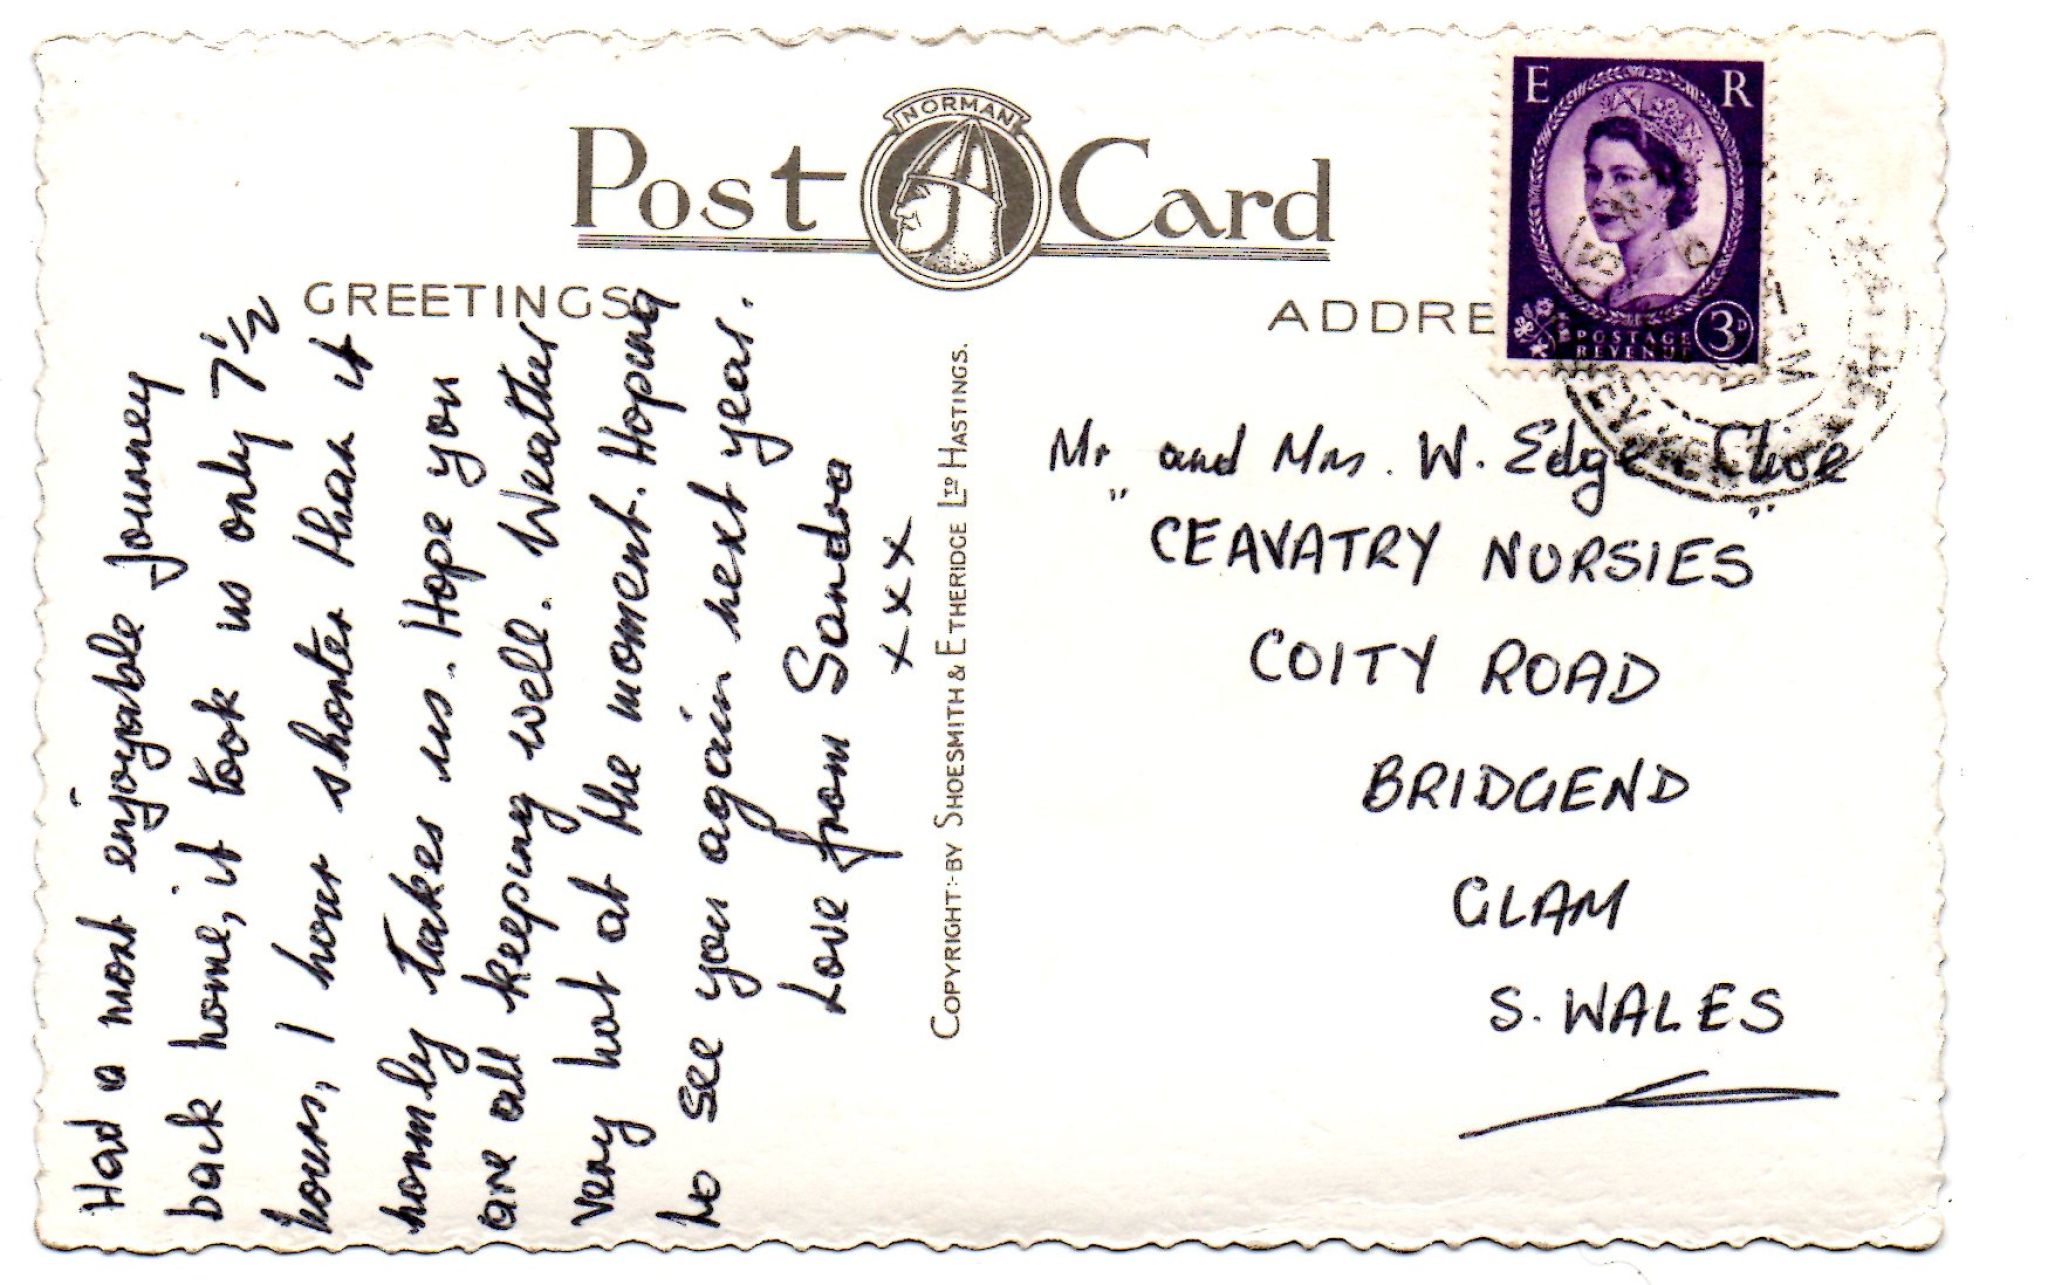 NORMAN
Post Card
GREETINGS
ADDRE
E R
POSTAGE
REVENUE
3D
Had a most enjoyable journey
back home, it took us only 7½
hours, 1 hour shorter than it
normly takes us. Hope you
are all keeping well. Weather
very hot at the moment. Hoping
to see you again next year.
Love from Sandra
xxx
COPYRIGHT:-BY SHOESMITH & ETHERIDGE LTD HASTINGS.
Mr and Mrs. W. Edge
"CEAVATRY NURSIES"
COITY ROAD
BRIDGEND
GLAM
S. WALES